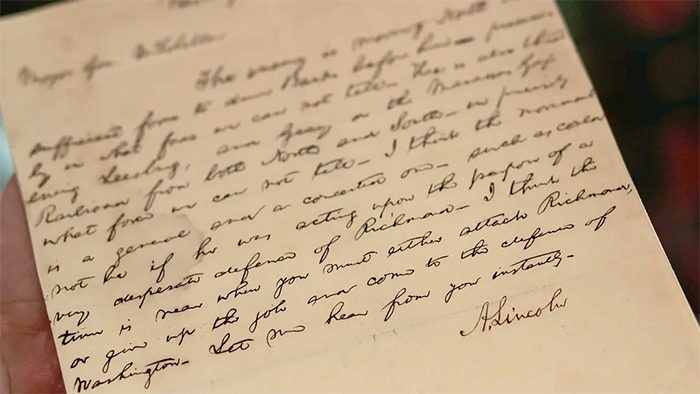 Major Gen. McClellan
The enemy is moving North in
sufficient force to drive Banks before him – precise-
ly in what force we can not tell – He is also threat-
ening Leesburg, and Geary on the Manassas Gap
Railroad from both North and South – in precisely
what force we can not tell – I think the movement
is a general and a concerted one – such as could
not be if he was acting upon the purpose of a
very desperate defence of Richmond – I think the
time is near when you must either attack Richmond,
or give up the job and come to the defence of
Washington – Let me hear from you instantly –
A. Lincoln